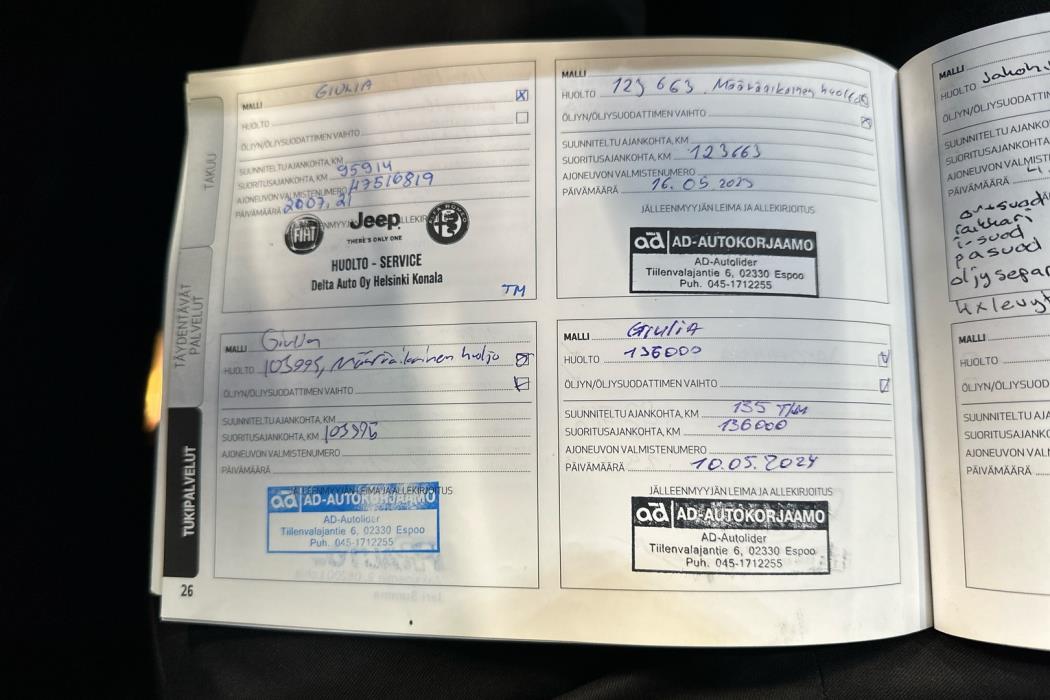 TAKUU
TÄYDENTÄVÄT
PALVELUT
TUKIPALVELUT
MALLI GIULIA
HUOLTO
ÖLJYN/ÖLJYSUODATTIMEN VAIHTO
SUUNNITELTU AJANKOHTA, KM
SUORITUSAJANKOHTA, KM 95914
AJONEUVON VALMISTENUMERO H7516819
PÄIVÄMÄÄRÄ
FIAT
Jeep
THERE'S ONLY ONE
ALFA ROMEO
HUOLTO - SERVICE
Delta Auto Oy Helsinki Konala
TM
MALLI
HUOLTO 123 663. Määräaikainen huolto
ÖLJYN/ÖLJYSUODATTIMEN VAIHTO
SUUNNITELTU AJANKOHTA, KM
SUORITUSAJANKOHTA, KM 123663
AJONEUVON VALMISTENUMERO
PÄIVÄMÄÄRÄ 16.05.2023
JÄLLEENMYYJÄN LEIMA JA ALLEKIRJOITUS
ad AD-AUTOKORJAAMO
AD-Autolider
Tiilenvalajantie 6, 02330 Espoo
Puh. 045-1712255
MALLI Giulia
HUOLTO 103995, Määräaikainen huolto
ÖLJYN/ÖLJYSUODATTIMEN VAIHTO
SUUNNITELTU AJANKOHTA, KM
SUORITUSAJANKOHTA, KM 103995
AJONEUVON VALMISTENUMERO
PÄIVÄMÄÄRÄ
JÄLLEENMYYJÄN LEIMA JA ALLEKIRJOITUS
ad AD-AUTOKORJAAMO
AD-Autolider
Tiilenvalajantie 6, 02330 Espoo
Puh. 045-1712255
MALLI GIULIA
HUOLTO 136000
ÖLJYN/ÖLJYSUODATTIMEN VAIHTO
SUUNNITELTU AJANKOHTA, KM 135 T/KM
SUORITUSAJANKOHTA, KM 136000
AJONEUVON VALMISTENUMERO
PÄIVÄMÄÄRÄ 10.05.2024
JÄLLEENMYYJÄN LEIMA JA ALLEKIRJOITUS
ad AD-AUTOKORJAAMO
AD-Autolider
Tiilenvalajantie 6, 02330 Espoo
Puh. 045-1712255
26
MALLI
HUOLTO
ÖLJYN/ÖLJYSUODATTIM
SUUNNITELTU AJANKO
SUORITUSAJANKOHTA
AJONEUVON VALMIST
PÄIVÄMÄÄRÄ
raikkari
i-suod
pasuod
öljysepar
4xlevyt
MALLI
HUOLTO
ÖLJYN/ÖLJYSUOD
SUUNNITELTU AJA
SUORITUSAJANKO
AJONEUVON VAL
PÄIVÄMÄÄRÄ